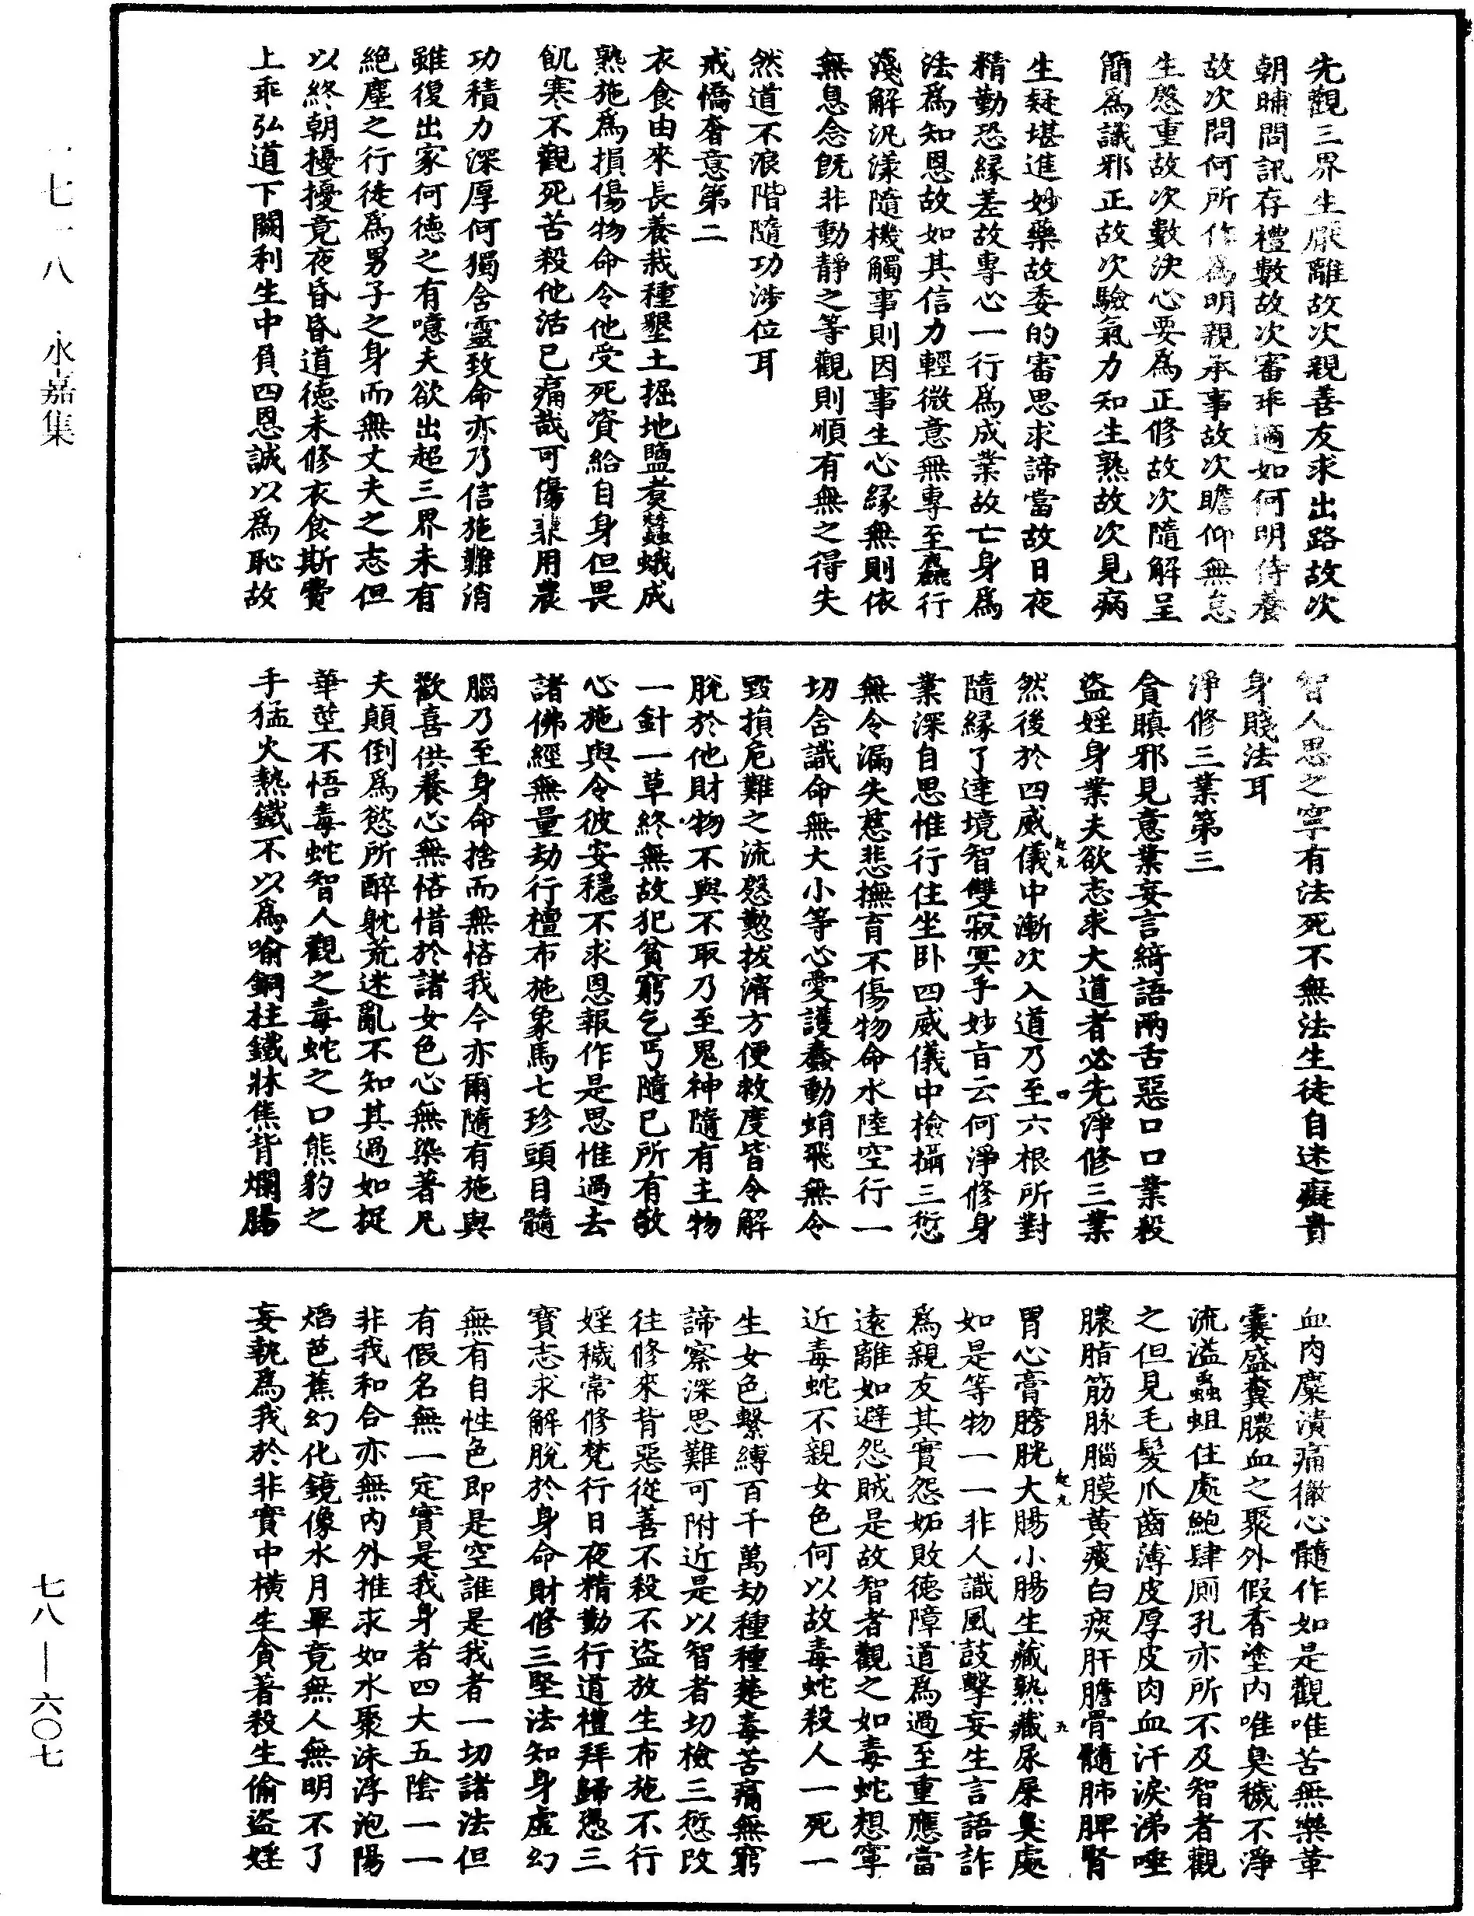 先觀三界生厭離故次親善友求出路故次
朝晡問訊存禮數故次審乖適如何明侍養
故次問何所作為明親承事故次瞻仰無怠
生慇重故次數決心要為正修故次隨解呈
簡為識邪正故次驗氣力知生熟故次見病
生疑堪進妙藥故委的審思求諦當故日夜
精勤恐緣差故專心一行為成業故亡身為
法為知恩故如其信力輕微意無專至麁行
淺解汎漾隨機觸事則因事生心緣無則依
無息念旣非動靜之等觀則順有無之得失
然道不浪階隨功涉位耳
戒憍奢意第二
衣食由來長養栽種墾土掘地鹽煑蠶蛾成
熟施為損傷物命令他受死資給自身但畏
飢寒不觀死苦殺他活己痛哉可傷兼用農
功積力深厚何獨含靈致命亦乃信施難消
雖復出家何德之有噫夫欲出超三界未有
絕塵之行徒為男子之身而無丈夫之志但
以終朝擾擾竟夜昏昏道德未修衣食斯費
上乖弘道下闕利生中負四恩誠以為恥故
智人思之寧有法死不無法生徒自迷癡貴
身賤法耳
淨修三業第三
貪瞋邪見意業妄言綺語兩舌惡口口業殺
盜婬身業夫欲志求大道者必先淨修三業
然後於四威儀中漸次入道乃至六根所對
隨緣了達境智雙寂冥乎妙旨云何淨修身
業深自思惟行住坐臥四威儀中檢攝三愆
無令漏失慈悲撫育不傷物命水陸空行一
切含識命無大小等心愛護蠢動蜎飛無令
毀損危難之流慇懃拔濟方便救度皆令解
脫於他財物不與不取乃至鬼神隨有主物
一針一草終無故犯貧窮乞丐隨己所有敬
心施與令彼安穩不求恩報作是思惟過去
諸佛經無量劫行檀布施象馬七珍頭目髓
腦乃至身命捨而無悋我今亦爾隨有施與
歡喜供養心無悋惜於諸女色心無染著凡
夫顛倒為慾所醉躭荒迷亂不知其過如捉
華莖不悟毒蛇智人觀之毒蛇之口熊豹之
手猛火熱鐵不以為喻銅柱鐵牀焦背爛腸
血肉糜潰痛徹心髓作如是觀唯苦無樂革
囊盛糞膿血之聚外假香塗內唯臭穢不淨
流溢蟲蛆住處鮑肆廁孔亦所不及智者觀
之但見毛髮爪齒薄皮厚皮肉血汗淚涕唾
膿脂筋脉腦膜黃痰白痰肝膽骨髓肺脾腎
胃心膏膀胱大腸小腸生藏熟藏尿屎臭處
如是等物一一非人識風鼓擊妄生言語詐
為親友其實怨妬敗德障道為過至重應當
遠離如避怨賊是故智者觀之如毒蛇想寧
近毒蛇不親女色何以故毒蛇殺人一死一
生女色繫縛百千萬劫種種楚毒苦痛無窮
諦察深思難可附近是以智者切檢三愆改
往修來背惡從善不殺不盜放生布施不行
婬穢常修梵行日夜精勤行道禮拜歸憑三
寶志求解脫於身命財修三堅法知身虛幻
無有自性色即是空誰是我者一切諸法但
有假名無一定實是我身者四大五陰一一
非我和合亦無內外推求如水聚沫浮泡陽
焰芭蕉幻化鏡像水月畢竟無人無明不了
妄執為我於非實中橫生貪著殺生偷盜婬
永嘉集
七八—六〇七